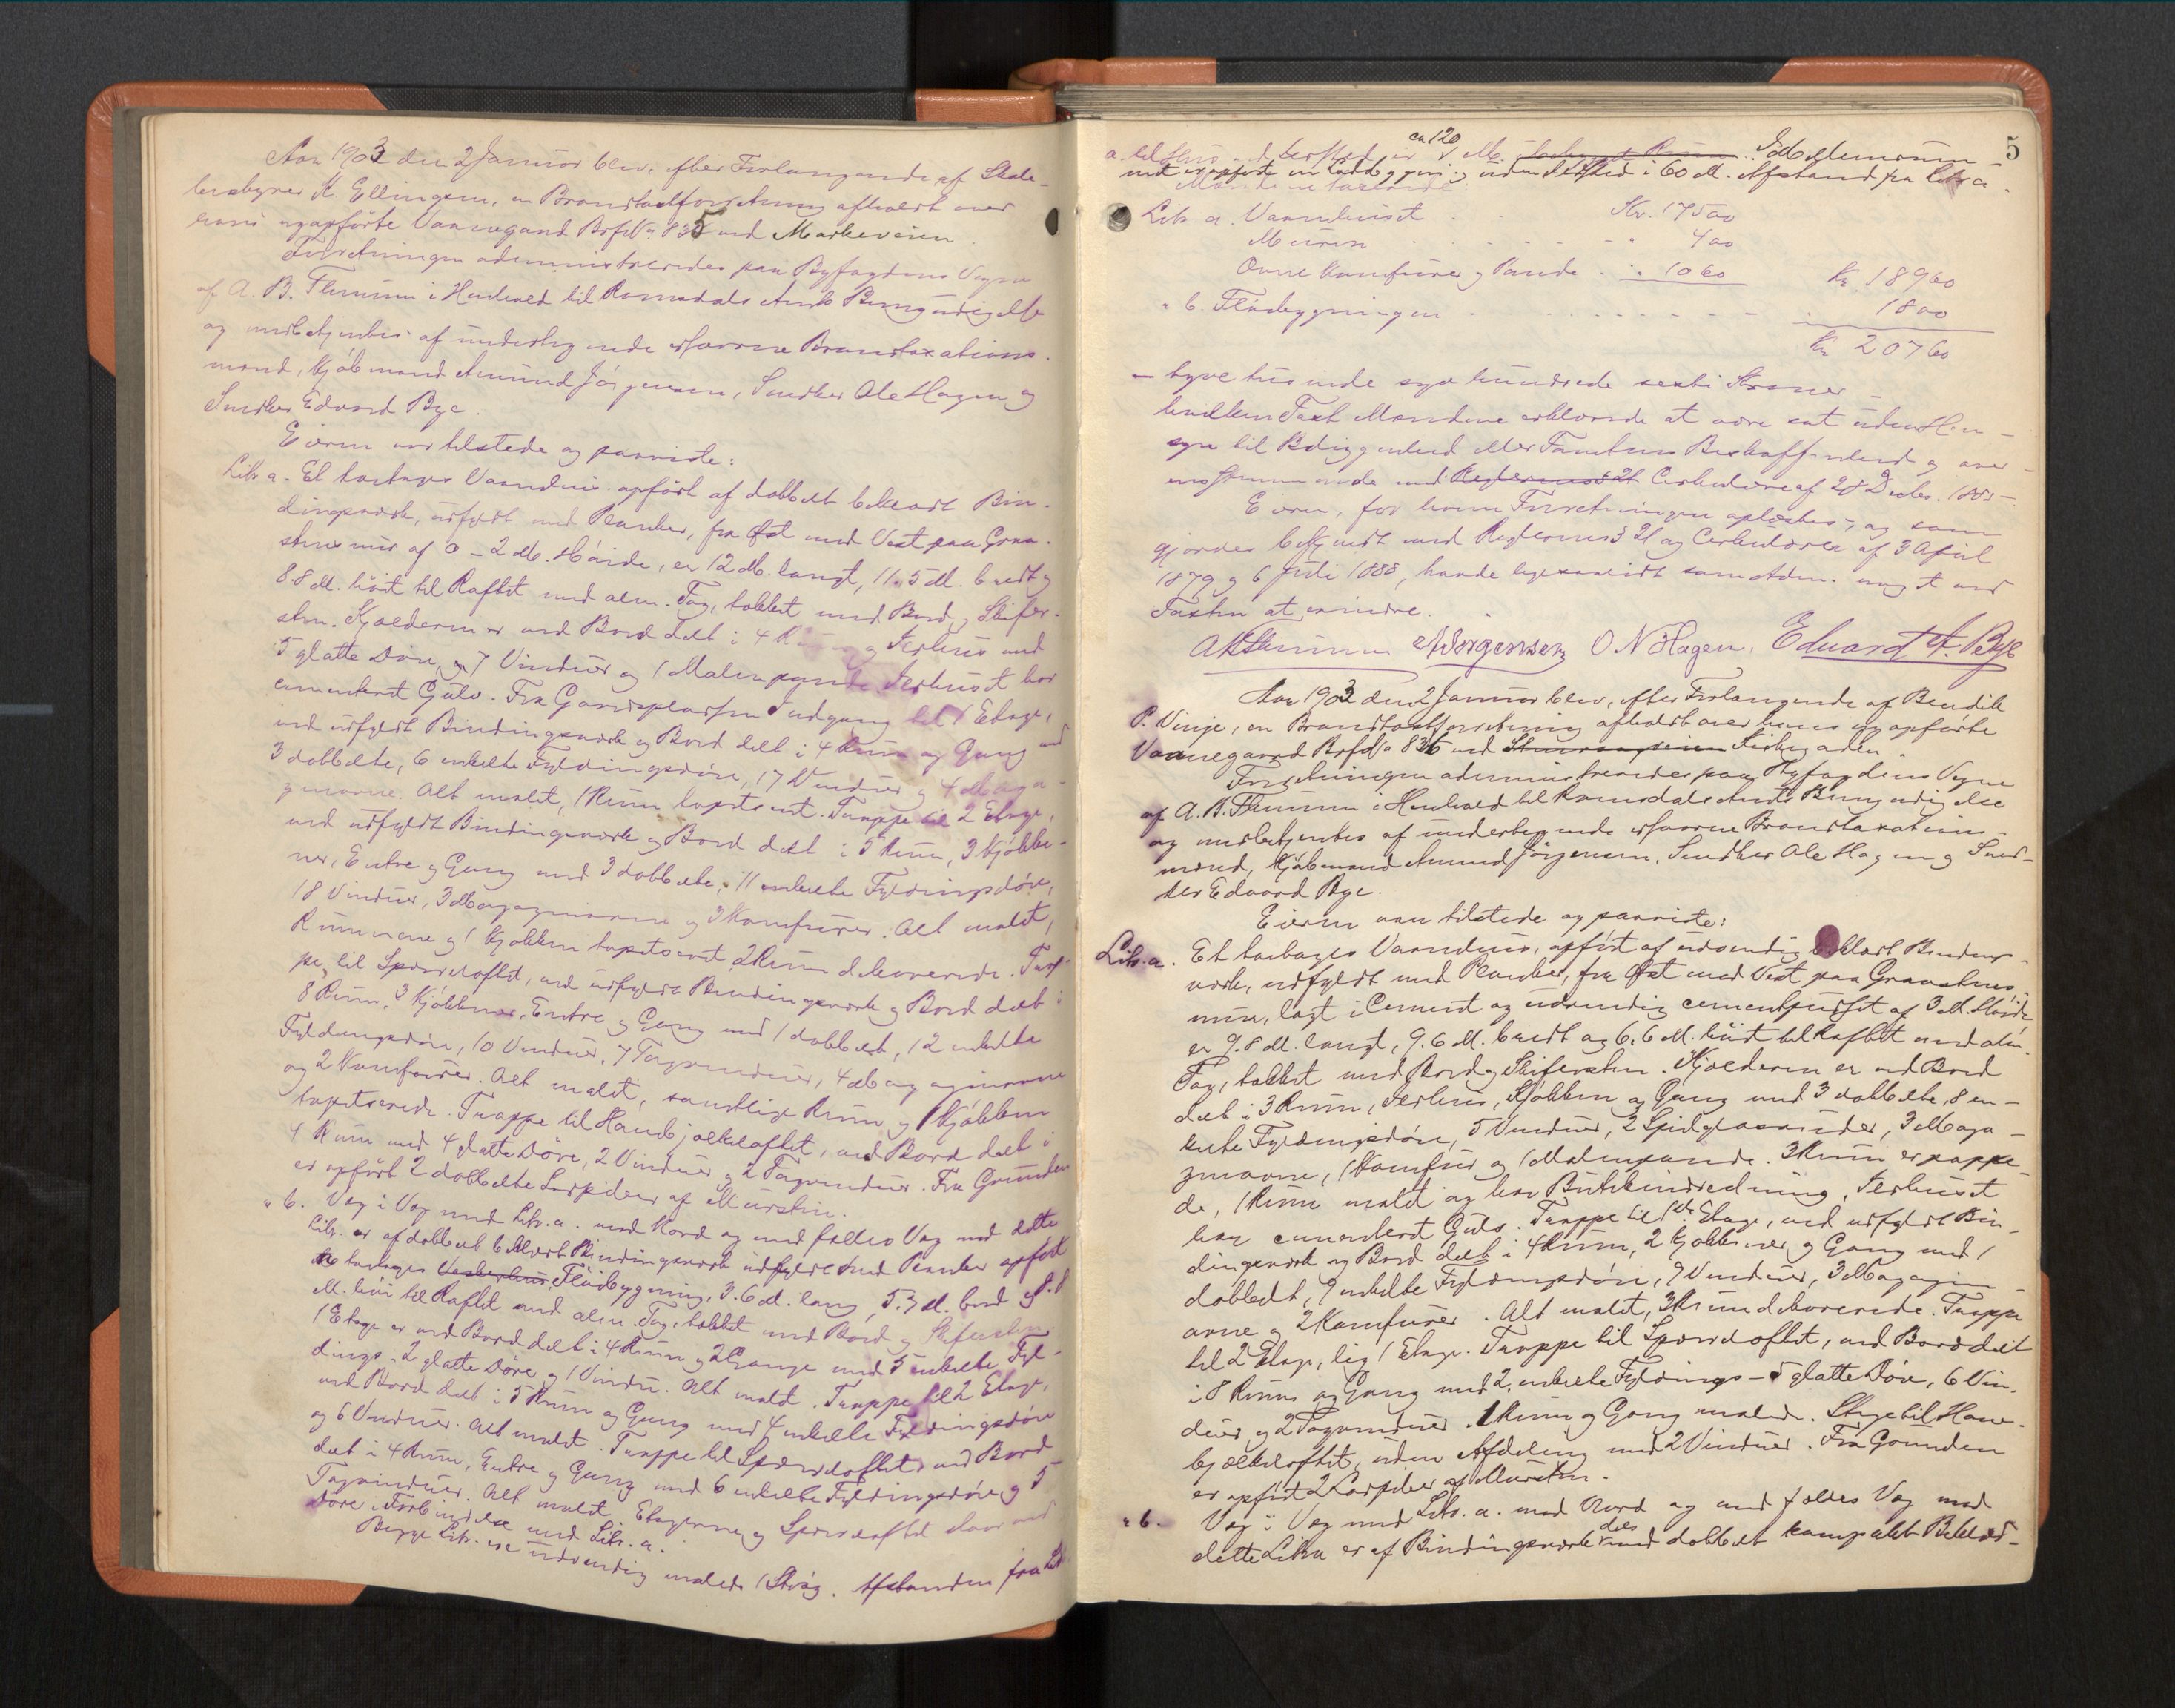 Aar 1903 den 2 Januar blev, efter Forlangende af Skole-
bestyrer K. Ellingsen, en Brandtaxtforretning afholdt over
hans nyopførte Vaaningsgaard Brf. No 835 ved Markeveien.
Forretningen administreredes paa Byfogdens Vegne
af A. B. Flemmen i Henhold til Romsdals Amts Bemyndigelse
og medbetjentes af undertegnede edsvorne Brandtaxations-
mænd, Kjøbmand Amund Jørgensen, Snedker Ole Hagen og
Snedker Edvard Bye.
Eieren var tilstede og paaviste:
Litr a. Et toetages Vaandhus opført af dobbelt beklædt Bin-
dingsværk, udfyldt med Planker, fra Øst mod Vest paa Graa-
stensmur af 0-2 M. Høide, er 12 M. langt, 11.5 M. bredt og
8.8 M. høit til Raftet med alm. Tag, tækket med Bord og Skifer-
sten. Kjælderen er med Bord delt i 4 Rum og Ildhus med
5 glatte Døre, 7 Vinduer og 1 Malmpande. Ildhuset har
cementeret Gulv. Fra Gaardspladsen Indgang til 1 Etage,
med udfyldt Bindingsværk og Bord delt i 4 Rum og Gang med
3 dobbelte, 6 enkelte Fyldingsdøre, 17 Vinduer og 4 Maga-
zinovne. Alt malet, 1 Rum tapetseret. Trappe til 2 Etage,
med udfyldt Bindingsværk og Bord delt i 5 Rum, 3 Kjøkke-
ner, Entre og Gang med 3 dobbelte, 11 enkelte Fyldingsdøre,
18 Vinduer, 3 Magazinovne og 3 Komfurer. Alt malet,
Rummene og 1 Kjøkken tapetseret, 2 Rum dekorerede. Trap-
pe til Sperreloftet, med udfyldt Bindingsværk og Bord delt i
8 Rum, 3 Kjøkkener, Entre og Gang med 1 dobbelt, 12 enkelte
Fyldingsdøre, 10 Vinduer, 7 Tagvinduer, 4 Magazinovne
og 2 Komfurer. Alt malet, samtlige Rum og 1 Kjøkken
tapetserede. Trappe til Hanebjælkeloftet, med Bord delt i
4 Rum med 4 glatte Døre, 2 Vinduer og 2 Tagvinduer. Fra Grunden
er opført 2 dobbelte Luftpiber af Mursten.
" b. Væg i Væg med Litr. a. mod Nord og med fælles Væg med dette
Litr. er af dobbelt beklædt Bindingsværk udfyldt med Planker opført
en toetages Vaskerhus Fløibygning, 3.6 M. lang, 5.3 M. bred og 8.8
M. høi til Raftet med alm. Tag, tækket med Bord og Skifersten.
1 Etage er med Bord delt i 4 Rum og 2 Gange med 5 enkelte Fyl-
dings-, 2 glatte Døre og 1 Vindu. Alt malet. Trappe til 2 Etage,
med Bord delt i 5 Rum og Gang med 4 enkelte Fyldingsdøre
og 6 Vinduer. Alt malet. Trappe til Sperreloftet med Bord
delt i 4 Rum, Entre og Gang med 6 enkelte Fyldingsdøre og 5
Tagvinduer. Alt malet. Etagerne og Sperreloftet staar ved
Døre i Forbindelse med Litr. a.
Begge Litr. ere udvendig malede 1 Strøg. Afstanden fra Litr
5
a. til Hus med Ildsted er ca 120 M.
ved er opført en Ladebygning uden Ildsted i 60 M. Afstand fra Litr a.
Mændene taxerede:
Litr a. Vaandhuset . . Kr. 17500
Muren . . . . . 400
Ovne Komfurer og Pande . . 1060 Kr. 18960
" b. Fløibygningen . . . . . 1800
Kr. 20760
- tyve tusinde syv hundrede sexti Kroner -
hvilken Taxt Mændene erklærede at være sat uden Hen-
syn til Beliggenhed eller Tomtens Beskaffenhed og over-
ensstemmende med Reglernes § 21 Cirkulære af 28 Decbr.
Eieren, for hvem Forretningen oplæstes, og som
gjordes bekjendt med Reglernes § 21 og Cirkulærer af 3 April
1879 og 6 Juli 1888, havde ligesaalidt som Adm. noget ved
Taxten at erindre.
ABFlemmen AJørgensen O N Hagen. Edvard A. Bye
Aar 1903 den 2 Januar blev, efter Forlangende af Bendik
P. Vinje, en Brandtaxtforretning afholdt over hans nyopførte
Vaaningsgaard Brf. No 836 ved Kirkegaden.
Forretningen administreredes paa Byfogdens Vegne
af A. B. Flemmen i Henhold til Romsdals Amts Bemyndigelse
og medbetjentes af undertegnede edsvorne Brandtaxations-
mænd, Kjøbmand Amund Jørgensen, Snedker Ole Hagen og Sned-
ker Edvard Bye.
Eieren var tilstede og paaviste:
Litr. a. Et toetages Vaandhus, opført af udvendig beklædt Bindings-
værk, udfyldt med Planker, fra Øst mod Vest paa Graastens-
mur, lagt i Cement og udvendig cementpudset af 3 M. Høide
er 9.8 M. langt, 9.6 M. bredt og 6.6 M. høit til Raftet med alm.
Tag, tækket med Bord og Skifersten. Kjælderen er med Bord
delt i 3 Rum, Ildhus, Kjøkken og Gang med 3 dobbelte, 8 en-
kelte Fyldingsdøre, 5 Vinduer, 2 Speilglasruder, 3 Maga-
zinovne, 1 Komfur og 1 Malmpande. 3 Rum er pappe-
de, 1 Rum malet og har Butikindredning, Ildhuset
har cementeret Gulv. Trappe til 1ste Etage, med udfyldt Bin-
dingsværk og Bord delt i 4 Rum, 2 Kjøkkener og Gang med 1
dobbelt, 9 enkelte Fyldingsdøre, 9 Vinduer, 3 Magazin-
ovne og 2 Komfurer. Alt malet, 3 Rum dekorerede. Trappe
til 2 Etage, lig 1 Etage. Trappe til Sperreloftet, med Bord delt
i 8 Rum og Gang med 2 enkelte Fyldings- 5 glatte Døre, 6 Vin-
duer og 2 Tagvinduer. 1 Rum og Gang malede. Stige til Hane-
bjælkeloftet, uden Afdeling med 2 Vinduer. Fra Grunden
er opført 2 Luftpiber af Mursten.
" b. Væg i Væg med Litr. a. mod Nord og med fælles Væg med
dette Litra er af Bindingsværk dels med dobbelt kompakt Beklæd-